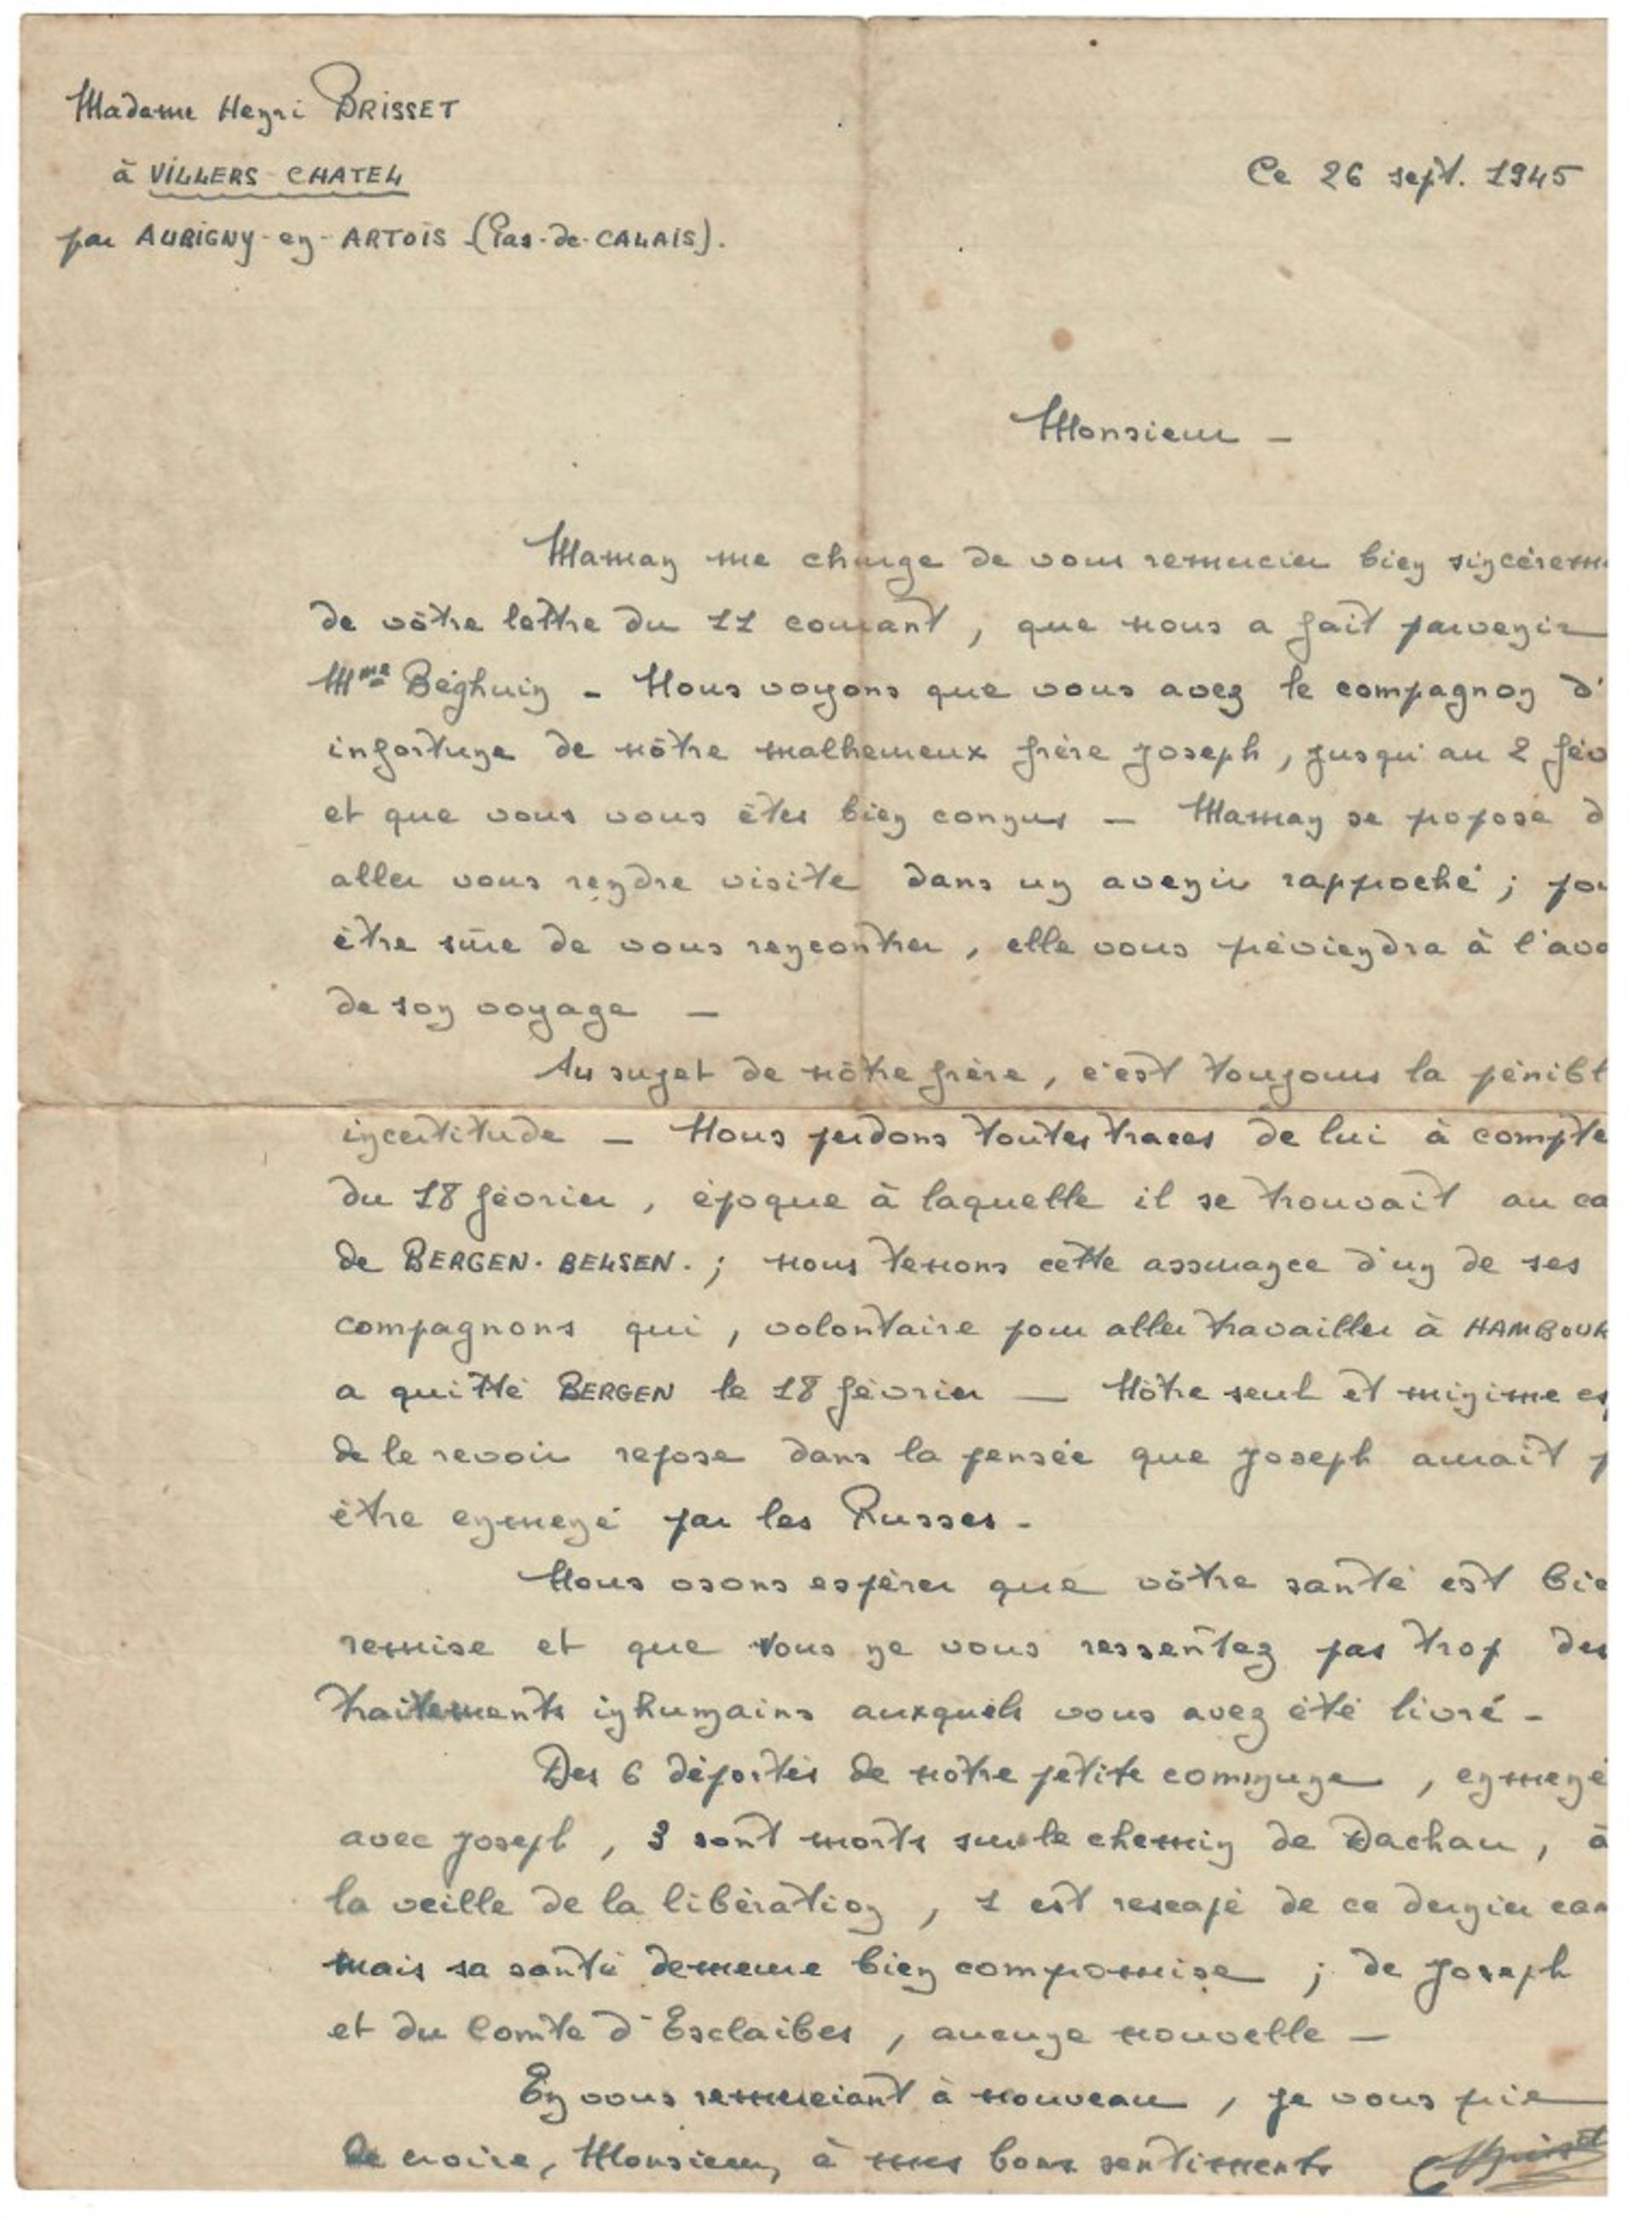 Madame Henri BRISSET
à VILLERS CHATEL
par AUBIGNY-en-ARTOIS (Pas-de-CALAIS).
Ce 26 sept. 1945
Monsieur —
Maman me charge de vous remercier bien sincèrem
de vôtre lettre du 11 courant, que nous a fait parvenir
Mme Béghuin - Nous voyons que vous avez le compagnon d'
infortune de nôtre malheureux frère Joseph, jusqu'au 2 fév
et que vous vous êtes bien connus — Maman se propose d
aller vous rendre visite dans un avenir rapproché ; pou
être sûre de vous rencontrer, elle vous préviendra à l'ava
de son voyage —
Au sujet de nôtre frère, c'est toujours la pénibl
incertitude — Nous perdons toutes traces de lui à compte
du 18 février, époque à laquelle il se trouvait au ca
de BERGEN-BELSEN. ; nous tenons cette assurance d'un de ses
compagnons qui, volontaire pour aller travailler à HAMBOUR
a quitté BERGEN le 18 février — Nôtre seul et minime es
de le revoir repose dans la pensée que Joseph aurait p
être emmené par les Russes -
Nous osons espérer que vôtre santé est bie
remise et que vous ne vous ressentez pas trop des
traitements inhumains auxquels vous avez été livré -
Des 6 déportés de nôtre petite commune, emmené
avec Joseph, 3 sont morts sur le chemin de Dachau, à
la veille de la libération, 1 est rescapé de ce dernier cam
mais sa santé demeure bien compromise ; de Joseph
et du Comte d'Esclaibes, aucune nouvelle —
En vous remerciant à nouveau, je vous prie
de croire, Monsieur, à mes bons sentiments Brisset